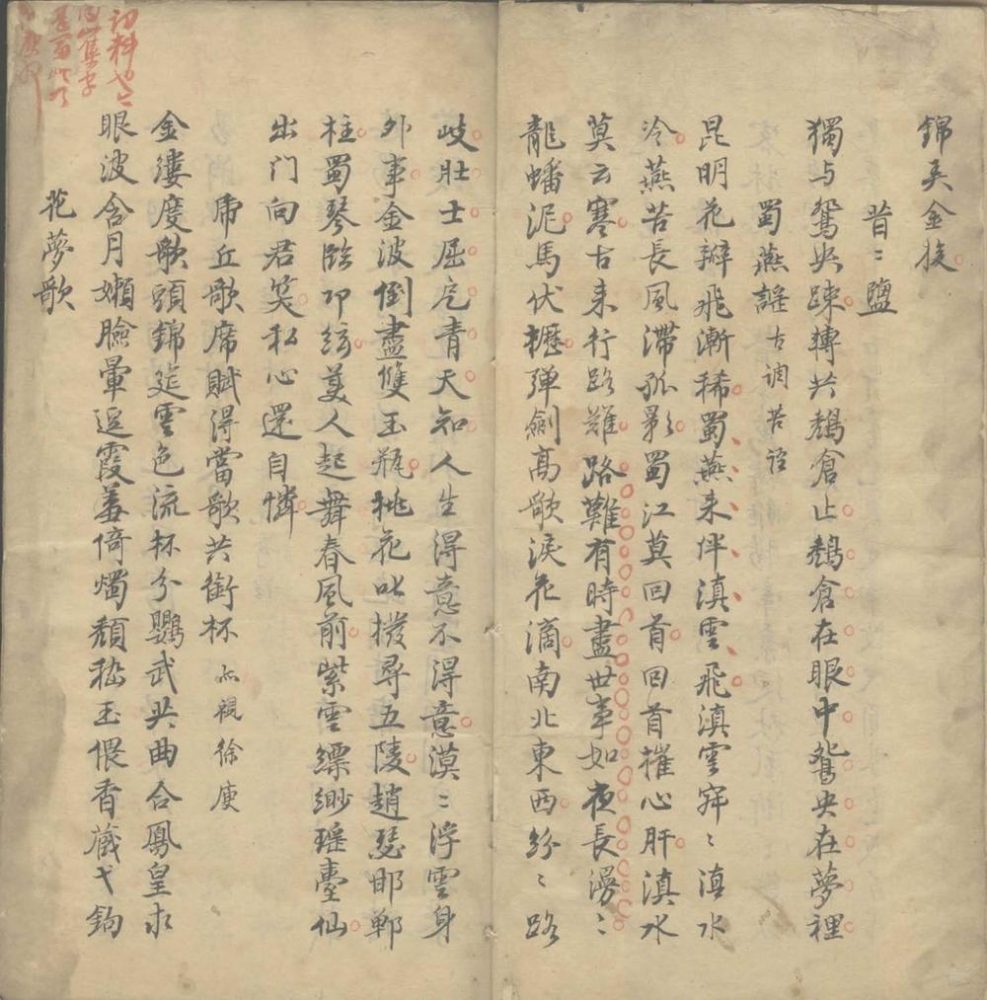 錦天金掞
昔〻鹽
獨与鴛央踈轉共鶬倉止鶬倉在眼中鴛央在夢裡
蜀燕謡古调苦謡
昆明花辦飛漸稀蜀燕来伴滇雲飛滇雲窣〻滇水
冷燕苦長風滯孤影蜀江莫回首回首摧心肝滇水
莫云寒古来行路難路難有時盡世事如夜長漫〻
龍蟠泥馬伏櫪弹劍高歌淚花滴南北東西紛〻路
岐壮士屈死青天知人生得意不得意漠〻浮雲身
外事金波倒盡雙玉瓶桃花叱撥尋五陵趙瑟邯鄲
柱蜀琴臨卭絃美人起舞春風前紫雲縹緲瑶臺仙
出门向君笑私心還自憐
席丘歌席賦得當歌共銜杯
金縷度歌頭錦筵雲色流杯分鸚武共曲合鳳皇求
眼波含月嬾臉暈逗霞羞倚燭頹嵇玉偎香藏弋鈎
花夢歌